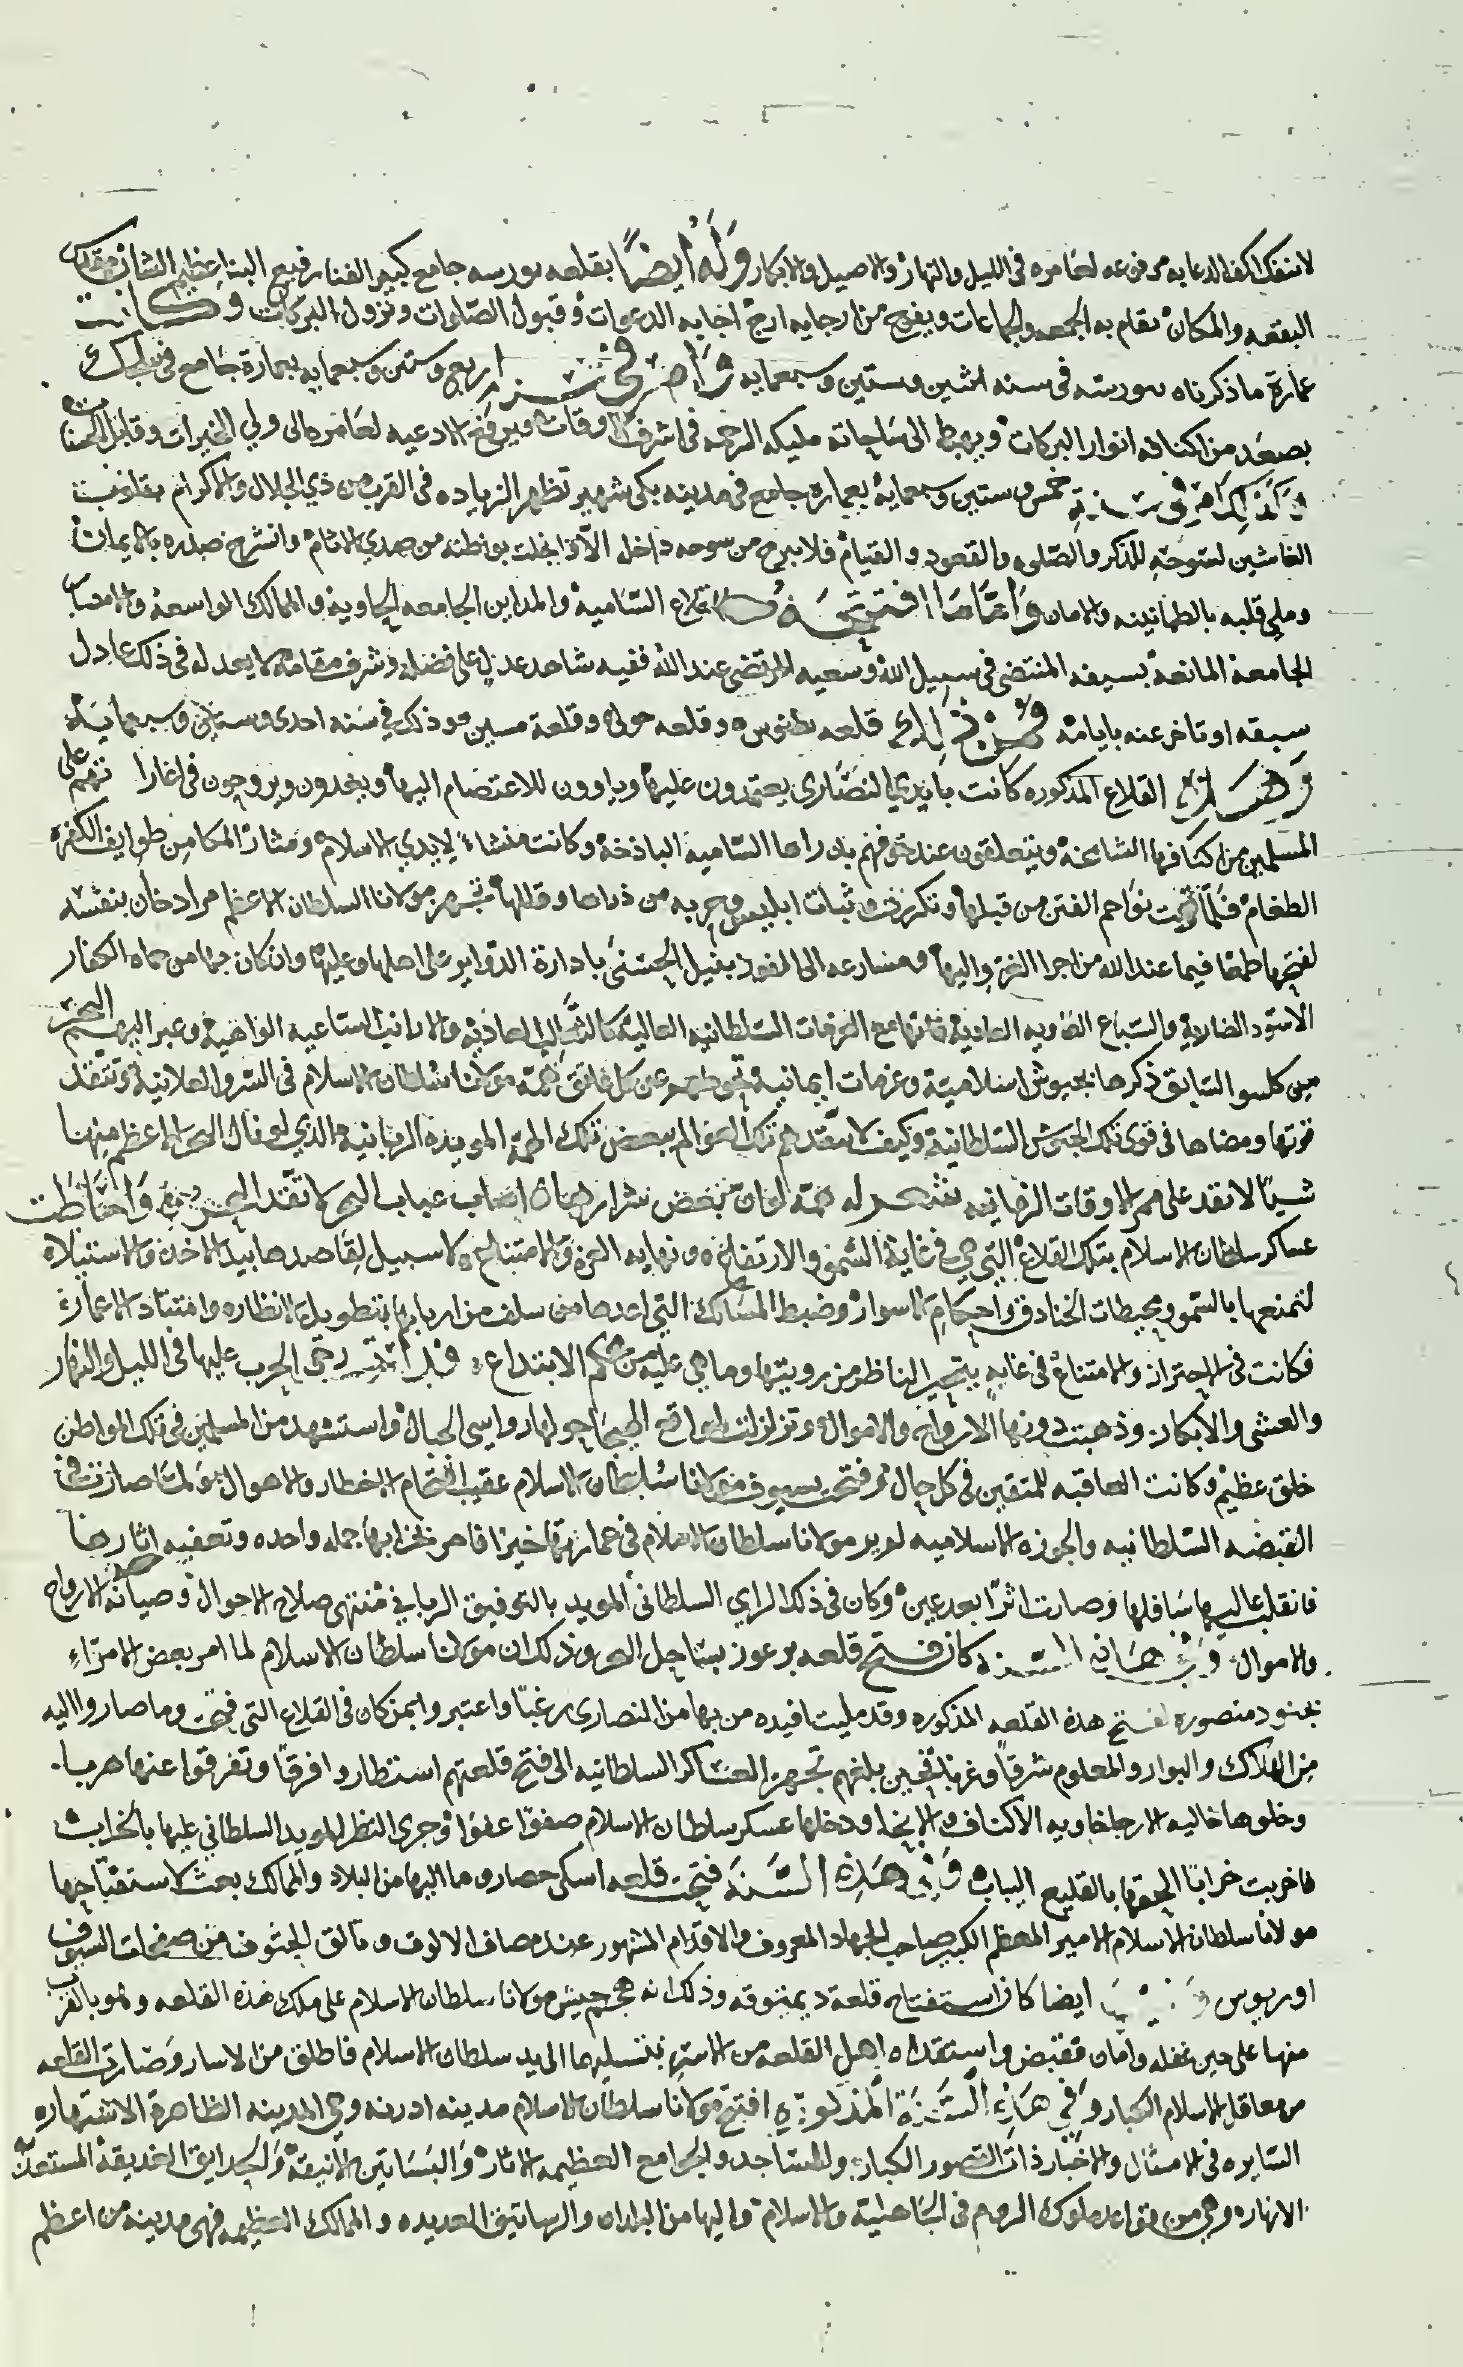 لا تنفك اكف الدعا به مرفوعه لعامره في الليل والنهار والاصيل والابكار وله ايضا بقلعه بورسه جامع كبير الفنا رفيع البنا عظيم الشان مقدس
البقعه والمكان تقام به الجمعه والجماعات ويفوح من ارجايه ارج اجابه الدعوات وقبول الصلوات ونزول البركات وكانت
عمارة ما ذكرناه ببورسه في سنه اثنين وستين وسبعمايه وامر في سنه اربع وستين وسبعمايه بعمارة جامع في بيلجك
يصعد من اكنافه انوار البركات ويهبط الى ساحاته مليكه الرحمه في اشرف الاوقات ويرفع الادعيه لعامره الى ولي الخيرات وقابل الحسنات
وكذلك امر في سنة خمس وستين وسبعماية بعماره جامع في مدينه يكي شهير تظهر الزياده في القرب من ذي الجلال والاكرام بقلوب
الغاشين لسوحه للذكر والصلوه والقعود والقيام فلا يبرح من سوحه داخل الا وانجلت بواطنه من صدي الاثام وانشرح صدره بالايمان
وملي قلبه بالطمانينه والامان واما ما افتتحه من القلاع الساميه والمداين الجامعه الحاويه والممالك الواسعة والامصار
الجامعة المانعة بسيفه المنتضى في سبيل الله وسعيه المرتضى عند الله ففيه شاهد عدل على فضله وشرف مقامه لا يعدله في ذلك عادل
سبقه او تاخر عنه بايامه فمن ذلك قلعه بطنوس وقلعه جولي وقلعة مسين وذلك في سنه احدى وستين وسبعمايه
وهذه القلاع المذكوره كانت بايدي النصارى يعتمدون عليها وياوون للاعتصام اليها ويغدون ويروحون في اغاراتهم على
المسلمين من اكنافها الشامخة ويتعلقون عند خوفهم بذراها السامية الباذخة وكانت منشاء لايدي الاسلام ومثار المكامن طوايف الكفرة
الطغام فلما نجمت نواجم الفتن من قبلها وتكررت وثبات ابليس وحزبه من ذراها وقللها تجهز مولانا السلطان الاعظم مراد خان بنفسه
لفتحها طمعا فيما عند الله من اجرا الغزو اليها ومسارعه الى الفوز بنيل الحسنى بادارة الدواير على اهلها وعليها وان كان بها من حماه الكفار
الاسود الضارية والسباع العاويه العادية فانها مع العزمات السلطانيه العالية كالثعالب العادية والارانب الساعية الواهية وعبر اليهم البحر
من كلبسو السابق ذكرها بجيوش اسلامية وعزمات ايمانية تحوطهم عن كل عايق همة مولانا سلطان الاسلام في السر والعلانية وتنفذ
قوتها ومضاها في قوى تلك الجيوش السلطانية وكيف لا تتقدم تلك العوالم ببعض تلك الهمة المويده الربانيه والذي لو نال البحر الاعظم منها
شيئا لانقد على ممر الاوقات الزمانيه شعر له همة لو ان بعض شرارها اصاب عباب البحر لاتقد البحر واحتاطت
عساكر سلطان الاسلام بتلك القلاع التي هي في غاية السمو والارتفاع ونهايه العز والامتناع ولا سبيل لقاصدها بيد الاخذ والاستيلاء
لتمنعها بالسمو ومحيطات الخنادق واحكام الاسوار وضبط المسالك التي اعدها من سلف من اربابها بتطويل الانظار وامتداد الاعمار
فكانت في الاحتراز والامتناع في غايه يتحير الناظر من رويتها وما هي عليه من حكم الابتداع فدارت رحى الحرب عليها في الليل والنهار
والعشي والابكار وذهبت دونها الارواح والاموال وتزلزلت لمواقع الهيجا حولها رواسي الجبال واستشهد من المسلمين في تلك المواطن
خلق عظيم وكانت العاقبه للمتقين في كل حال وفتحت بسيوف مولانا سلطان الاسلام عقيب اقتحام الاخطار والاهوال ولما صارت في
القبضه السلطانيه والحوزه الاسلاميه لم ير مولانا سلطان الاسلام في عمارتها خيرا فامر بخرابها جمله واحده وتعفيه اثارها
فانقلب عاليها سافلها وصارت اثرا بعد عين وكان في ذلك الراي السلطاني المويد بالتوفيق الرباني منتهى صلاح الاحوال وصيانة الارواح
والاموال وفي هذه السنه كان فتح قلعه برعوز بساحل البحر وذلك ان مولانا سلطان الاسلام لما امر بعض الامراء
بجنود منصوره لفتح هذه القلعه المذكوره وقد مليت افيده من بها من النصارى رعبا واعتبروا بمن كان في القلاع التي فتحت وما صاروا اليه
من الهلاك والبوار والمعلوم شرقا وغربا فحين بلغهم تجهز العساكر السلطانيه الى فتح قلعتهم استطاروا فرقا وتفرقوا عنها هربا
وخلوها خاليه الارجا خاويه الاكناف والانحا ودخلها عسكر سلطان الاسلام صفوا عفوا وجرى النظر المويد السلطاني عليها بالخراب
فاخربت خرابا الحقها بالقليع اليباب وفي هذه السنة فتحت قلعه اسكي حصار وما اليها من البلاد والممالك بعث لاستفتاحها
مولانا سلطان الاسلام الامير المعظم الكبير صاحب الجهاد المعروف والاقدام المشهور عند مصاف الالوف وتالق الحتوف من صفحات السيوف
اوريوس وفيها ايضا كان استفتاح قلعة ديمتوقه وذلك انه هجم جيش مولانا سلطان الاسلام على ملك هذه القلعه وهو بالقرب
منها على حين غفله وامان فقبض واستفداه اهل القلعه من الاسر بتسليمها الى يد سلطان الاسلام فاطلق من الاسار وصارت القلعه
من معاقل الاسلام الكبار وفي هذه السنة المذكوره افتتح مولانا سلطان الاسلام مدينه ادرنه وهي المدينه الظاهرة الاشتهار
السايره في الامثال والاخبار ذات القصور الكبار والمساجد والجوامع العظيمه الاثار والبساتين الانيقة والحدايق الغديقة المستعذبة
الانهار وهي من قواعد ملوك الروم في الجاهلية والاسلام واليها من البلدان والرساتيق العديده والممالك العظيمه فهي مدينه من اعظم